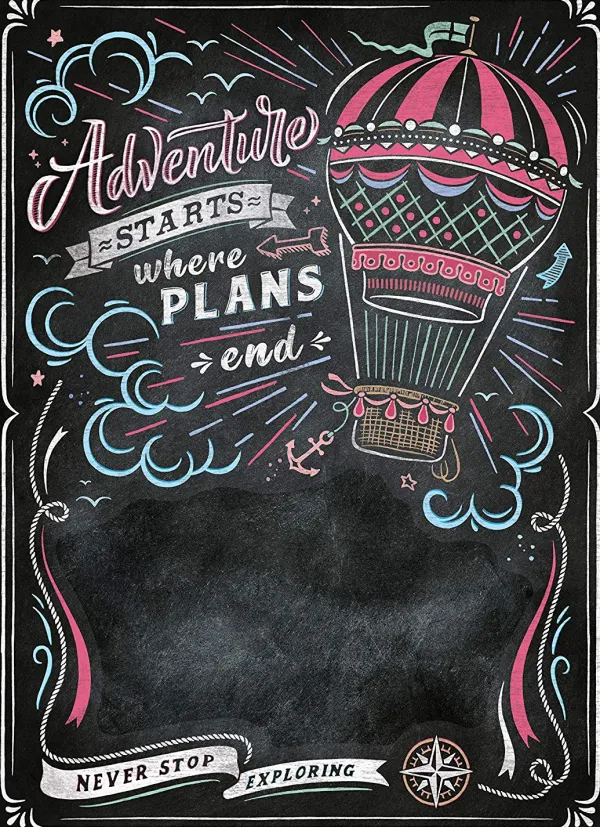 Adventure
STARTS
where
PLANS
end
NEVER STOP EXPLORING